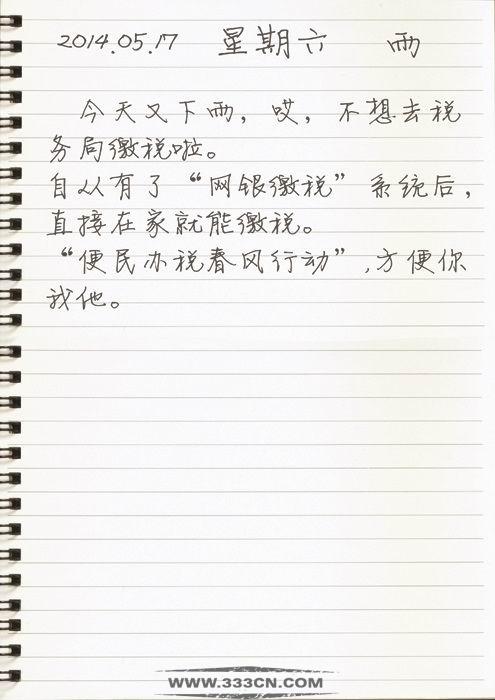 2014.05.17 星期六 雨
今天又下雨，哎，不想去税
务局缴税啦。
自从有了“网银缴税”系统后，
直接在家就能缴税。
“便民办税春风行动”，方便你
我他。
WWW.333CN.COM